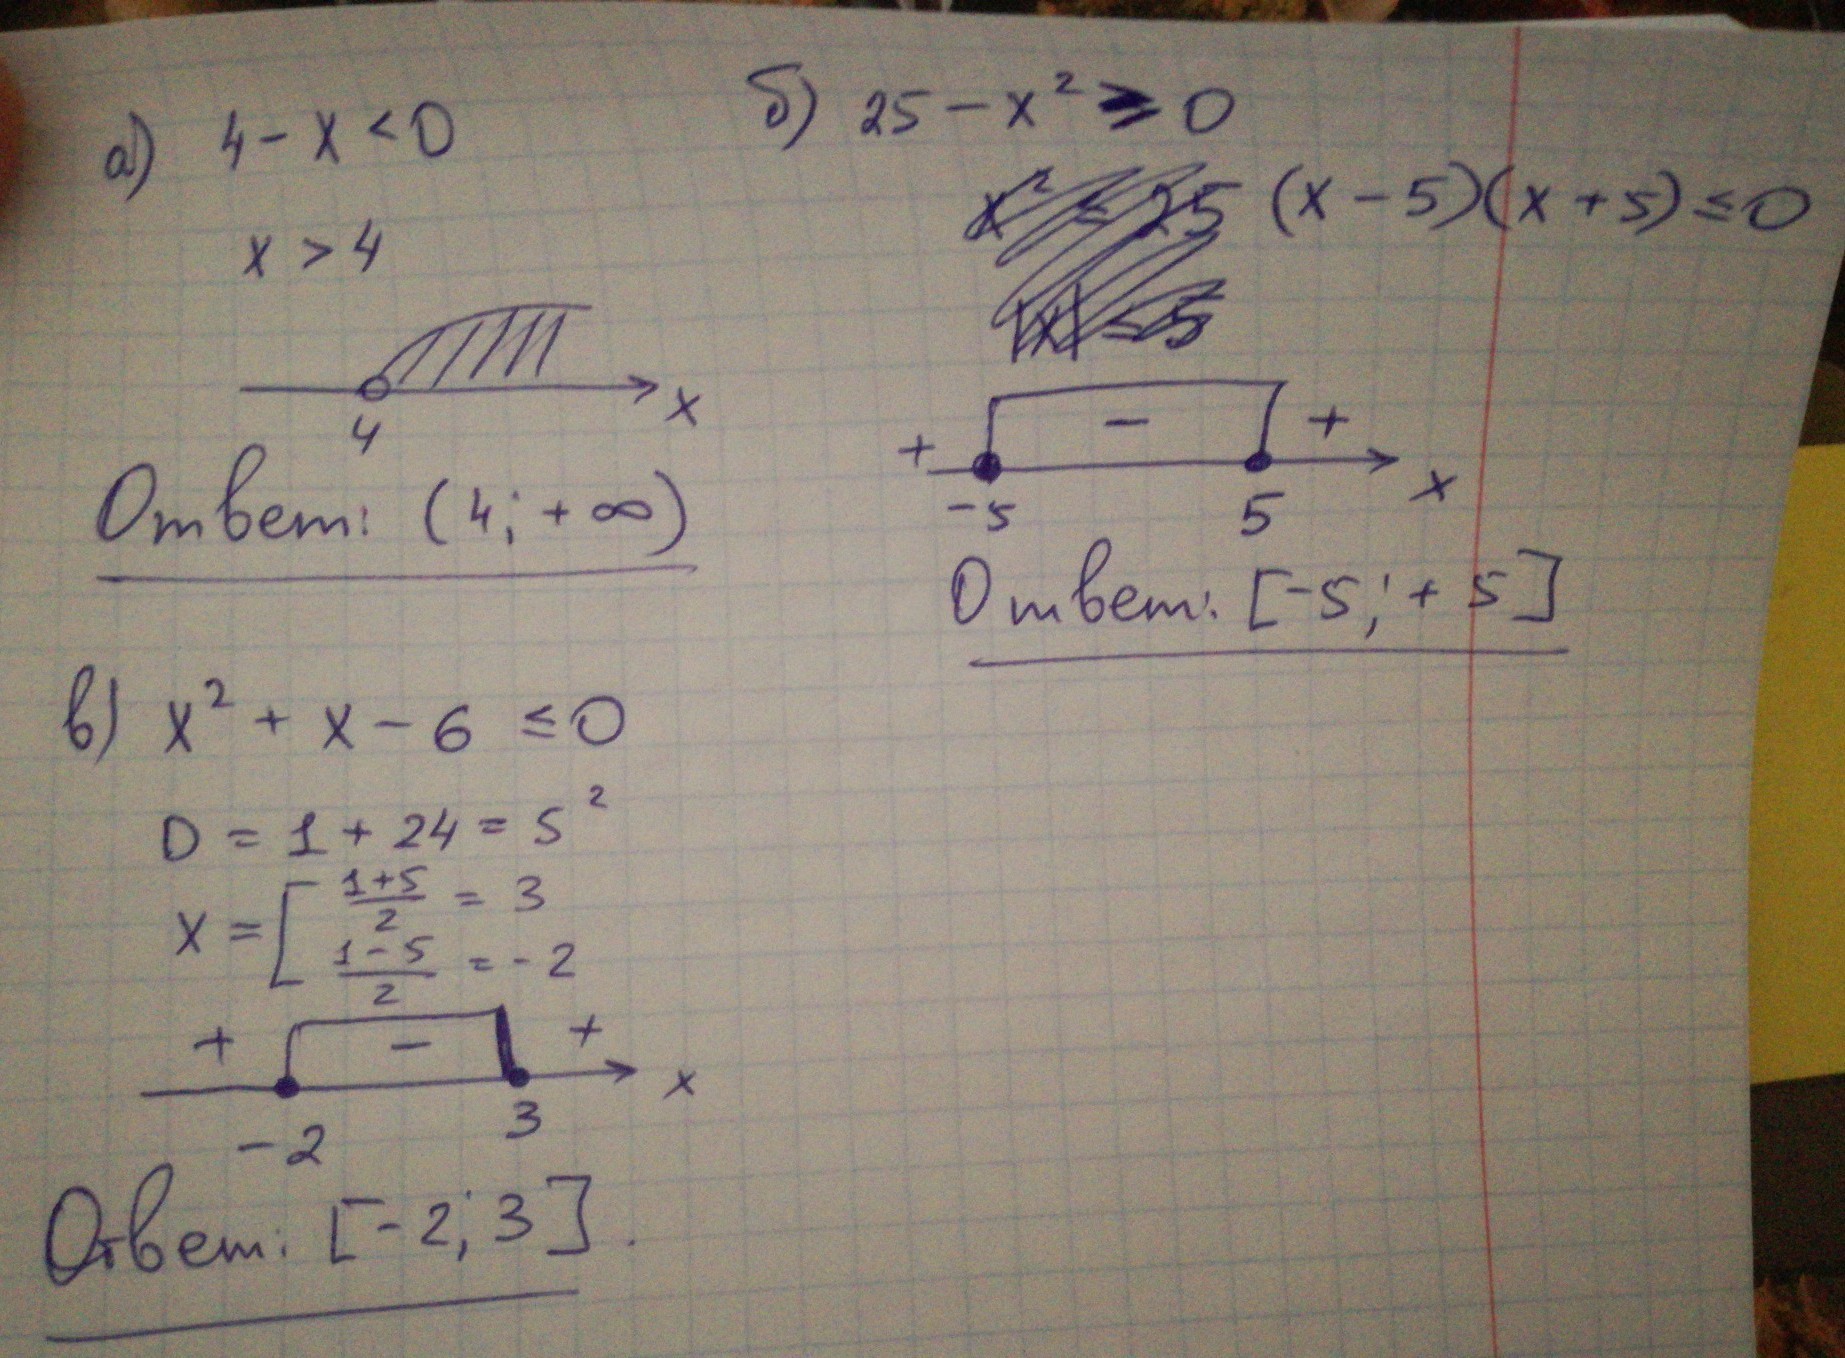 а) 4 - x < 0
x > 4
4 x
Ответ: (4; +∞)
б) 25 - x² ≥ 0
x² ≤ 25 (x - 5)(x + 5) ≤ 0
|x| ≤ 5
+ - +
-5 5 x
Ответ: [-5; +5]
в) x² + x - 6 ≤ 0
D = 1 + 24 = 5²
x = [ (1+5)/2 = 3
(1-5)/2 = -2
+ - +
-2 3 x
Ответ: [-2; 3].